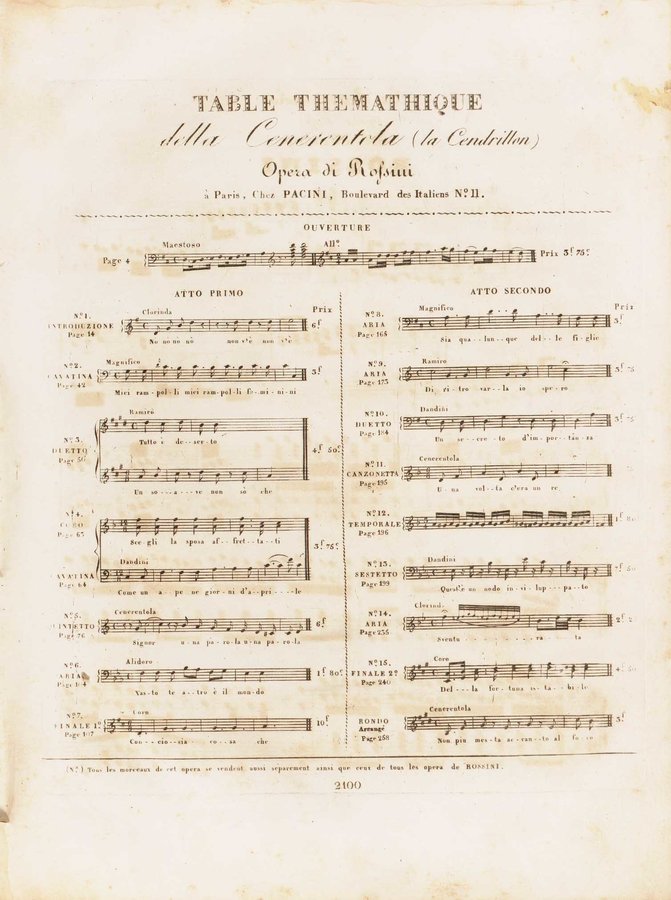 TABLE THEMATHIQUE
della Cenerentola (la Cendrillon)
Opera di Rossini
à Paris, Chez PACINI, Boulevard des Italiens Nº 11.
OUVERTURE
Maestoso All.º
Page 4 Prix 3f 75c
ATTO PRIMO
Prix
Nº 1.
INTRODUZIONE
Page 14
Clorinda
6f
No no no nò non v'è non v'è
Nº 2.
CAVATINA
Page 42
Magnifico
3f
Miei ram-pol-li miei ram-pol-li fe-mi-ni-ni
Nº 3.
DUETTO
Page 50
Ramiro
4f 50c
Tutto è de-ser-to
Un so--a--ve non so che
Nº 4.
CORO
Page 63
Sce-gli la sposa af-fret-ta-ti
3f 75c
CAVATINA
Page 64
Dandini
Come un a-pe ne gior-ni d'a--pri---le
Nº 5.
QUINTETTO
Page 76
Cenerentola
6f
Signor una pa-ro-la una pa-ro-la
Nº 6.
ARIA
Page 104
Alidoro
1f 80c
Vas-to te-a-tro è il mon-do
Nº 7.
FINALE 1º
Page 107
Coro
10f
Con--cio-sia--co--sa che
ATTO SECONDO
Prix
Nº 8.
ARIA
Page 165
Magnifico
3f
Sia qua--lun--que del--le fi-glie
Nº 9.
ARIA
Page 175
Ramiro
3f 75
Di ri-tro var-la io spe-ro
Nº 10.
DUETTO
Page 184
Dandini
Un se--cre-to d'im-por-tan-za
Nº 11.
CANZONETTA
Page 195
Cenerentola
U-na vol-ta c'era un re
Nº 12.
TEMPORALE
Page 196
Nº 13.
SESTETTO
Page 199
Dandini
Quest'è un nodo in-vi-lup--pa-to
Nº 14.
ARIA
Page 235
Clorinda
Sventu---ra-ta
Nº 15.
FINALE 2º
Page 240
Coro
Del---la for-tuna is-ta-bi-le
RONDO
Arrangé
Page 258
Cenerentola
3f
Non piu mes-ta ac-can-to al fo-co
(Nª) Tous les morceaux de cet opera se vendent aussi separement ainsi que ceux de tous les opera de ROSSINI.
2100